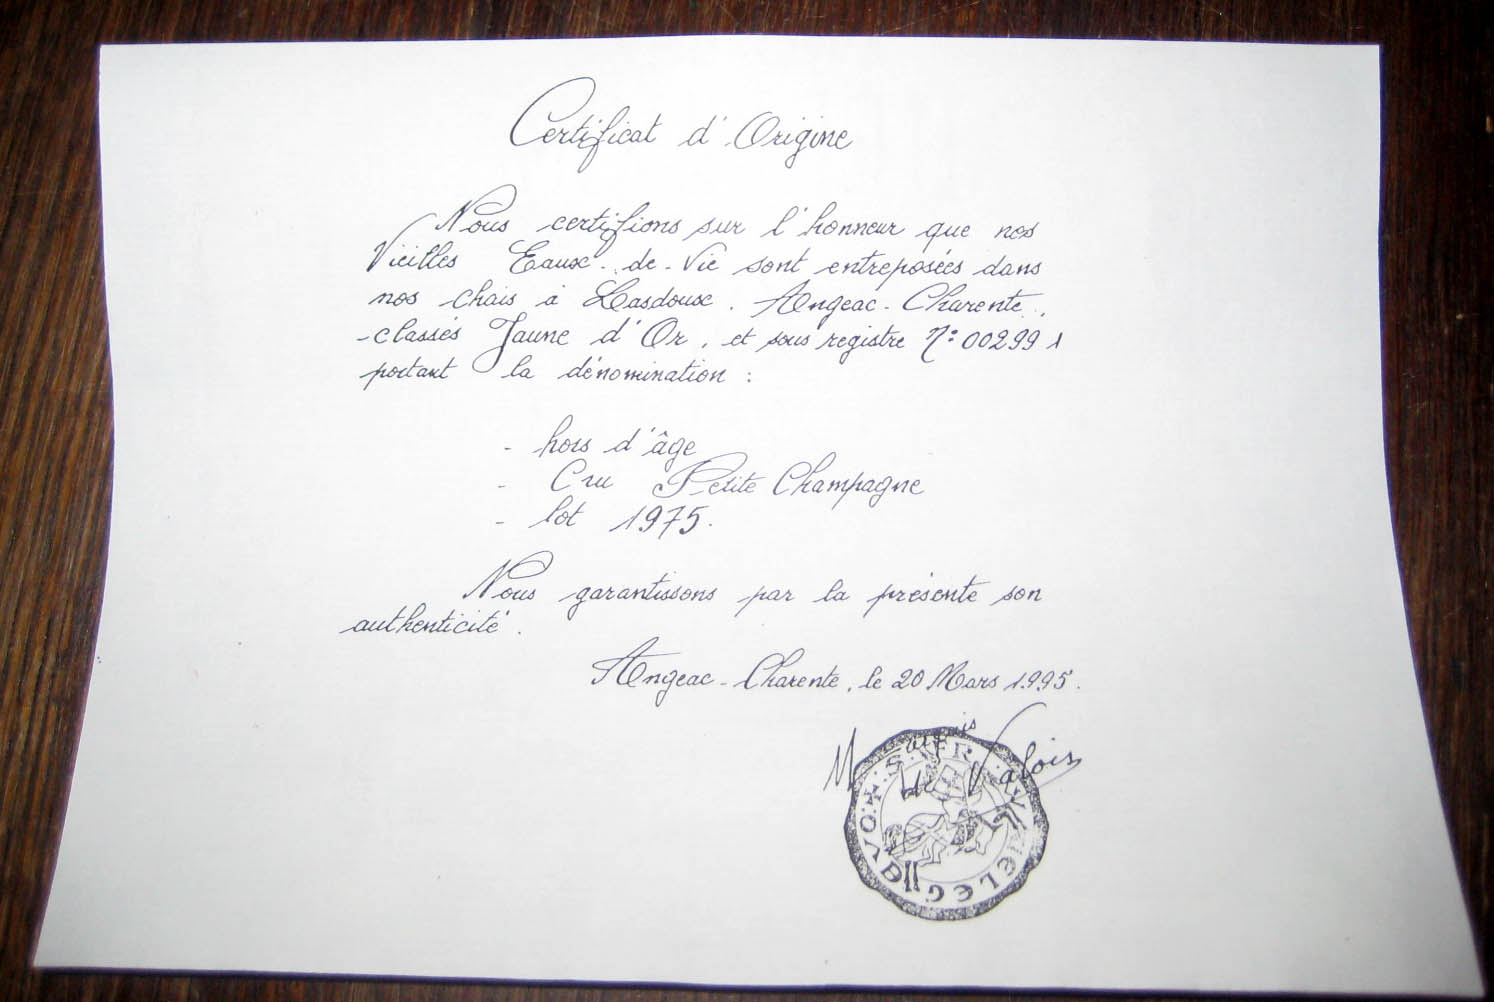 Certificat d'Origine
Nous certifions sur l'honneur que nos
Vieilles Eaux-de-Vie sont entreposées dans
nos chais à Lasdoux. Angeac-Charente.
-classés Jaune d'Or, et sous registre N: 00299 1
portant la dénomination :
- hors d'âge
- Cru Petite Champagne
- lot 1975.
Nous garantissons par la présente son
authenticité.
Angeac-Charente, le 20 Mars 1995.
Valois